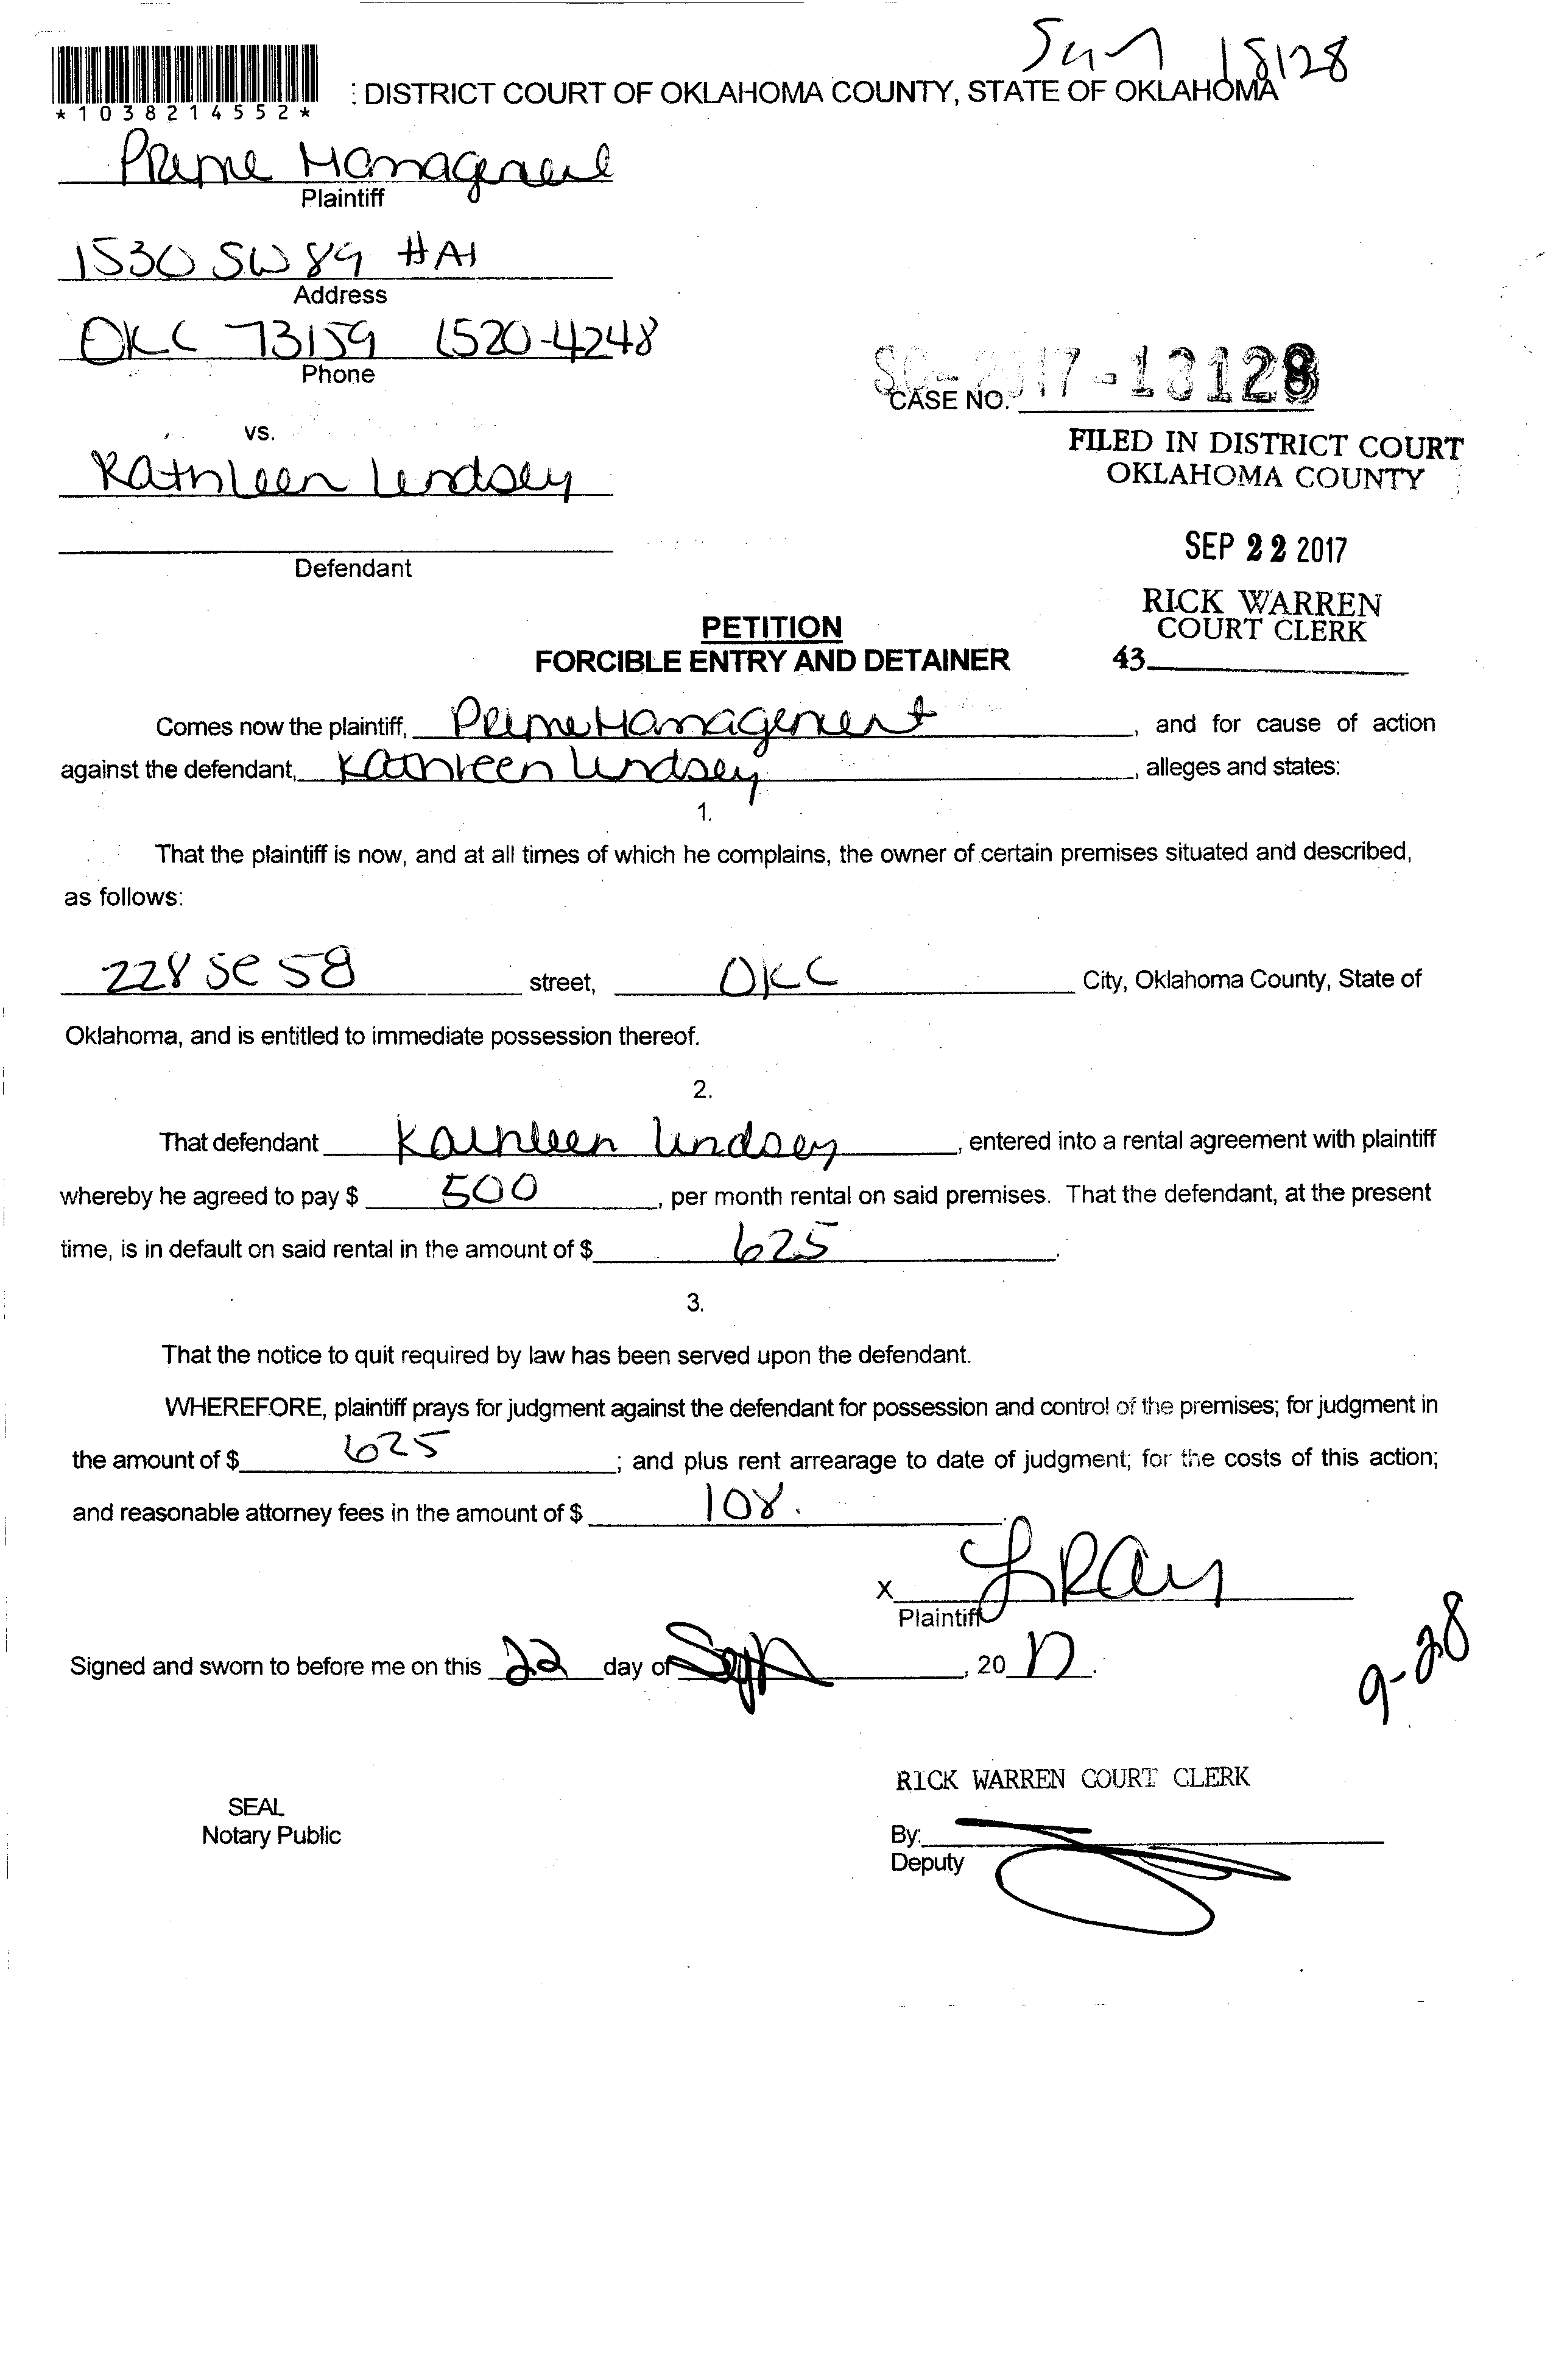 Sum 18128
: DISTRICT COURT OF OKLAHOMA COUNTY, STATE OF OKLAHOMA
*1038214552*
Prime Management
Plaintiff
1530 SW 89 #A1
Address
OKC 73159 1520-4248
Phone
SC-2017-18128
CASE NO.
vs.
FILED IN DISTRICT COURT
OKLAHOMA COUNTY
Kathleen Lindsey
SEP 22 2017
Defendant
RICK WARREN
COURT CLERK
43
PETITION
FORCIBLE ENTRY AND DETAINER
Comes now the plaintiff, Prime Management, and for cause of action
against the defendant, Kathleen Lindsey, alleges and states:
1.
That the plaintiff is now, and at all times of which he complains, the owner of certain premises situated and described,
as follows:
228 SE 58 street, OKC City, Oklahoma County, State of
Oklahoma, and is entitled to immediate possession thereof.
2.
That defendant Kathleen Lindsey, entered into a rental agreement with plaintiff
whereby he agreed to pay $ 500, per month rental on said premises. That the defendant, at the present
time, is in default on said rental in the amount of $ 625.
3.
That the notice to quit required by law has been served upon the defendant.
WHEREFORE, plaintiff prays for judgment against the defendant for possession and control of the premises; for judgment in
the amount of $ 625; and plus rent arrearage to date of judgment; for the costs of this action;
and reasonable attorney fees in the amount of $ 108.
X LRay
Plaintiff
Signed and sworn to before me on this 22 day of Sept, 20 17.
9-28
RICK WARREN COURT CLERK
SEAL
Notary Public
By:
Deputy